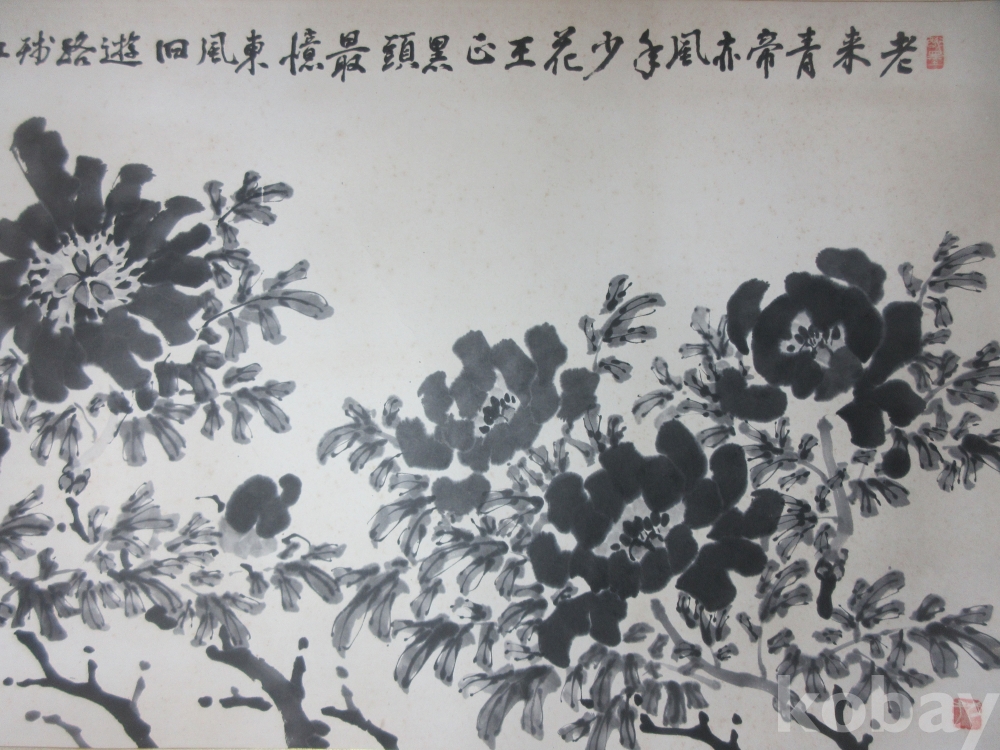 老来青帝亦風年少花王正黒頭最憶東風旧遊路
kobay